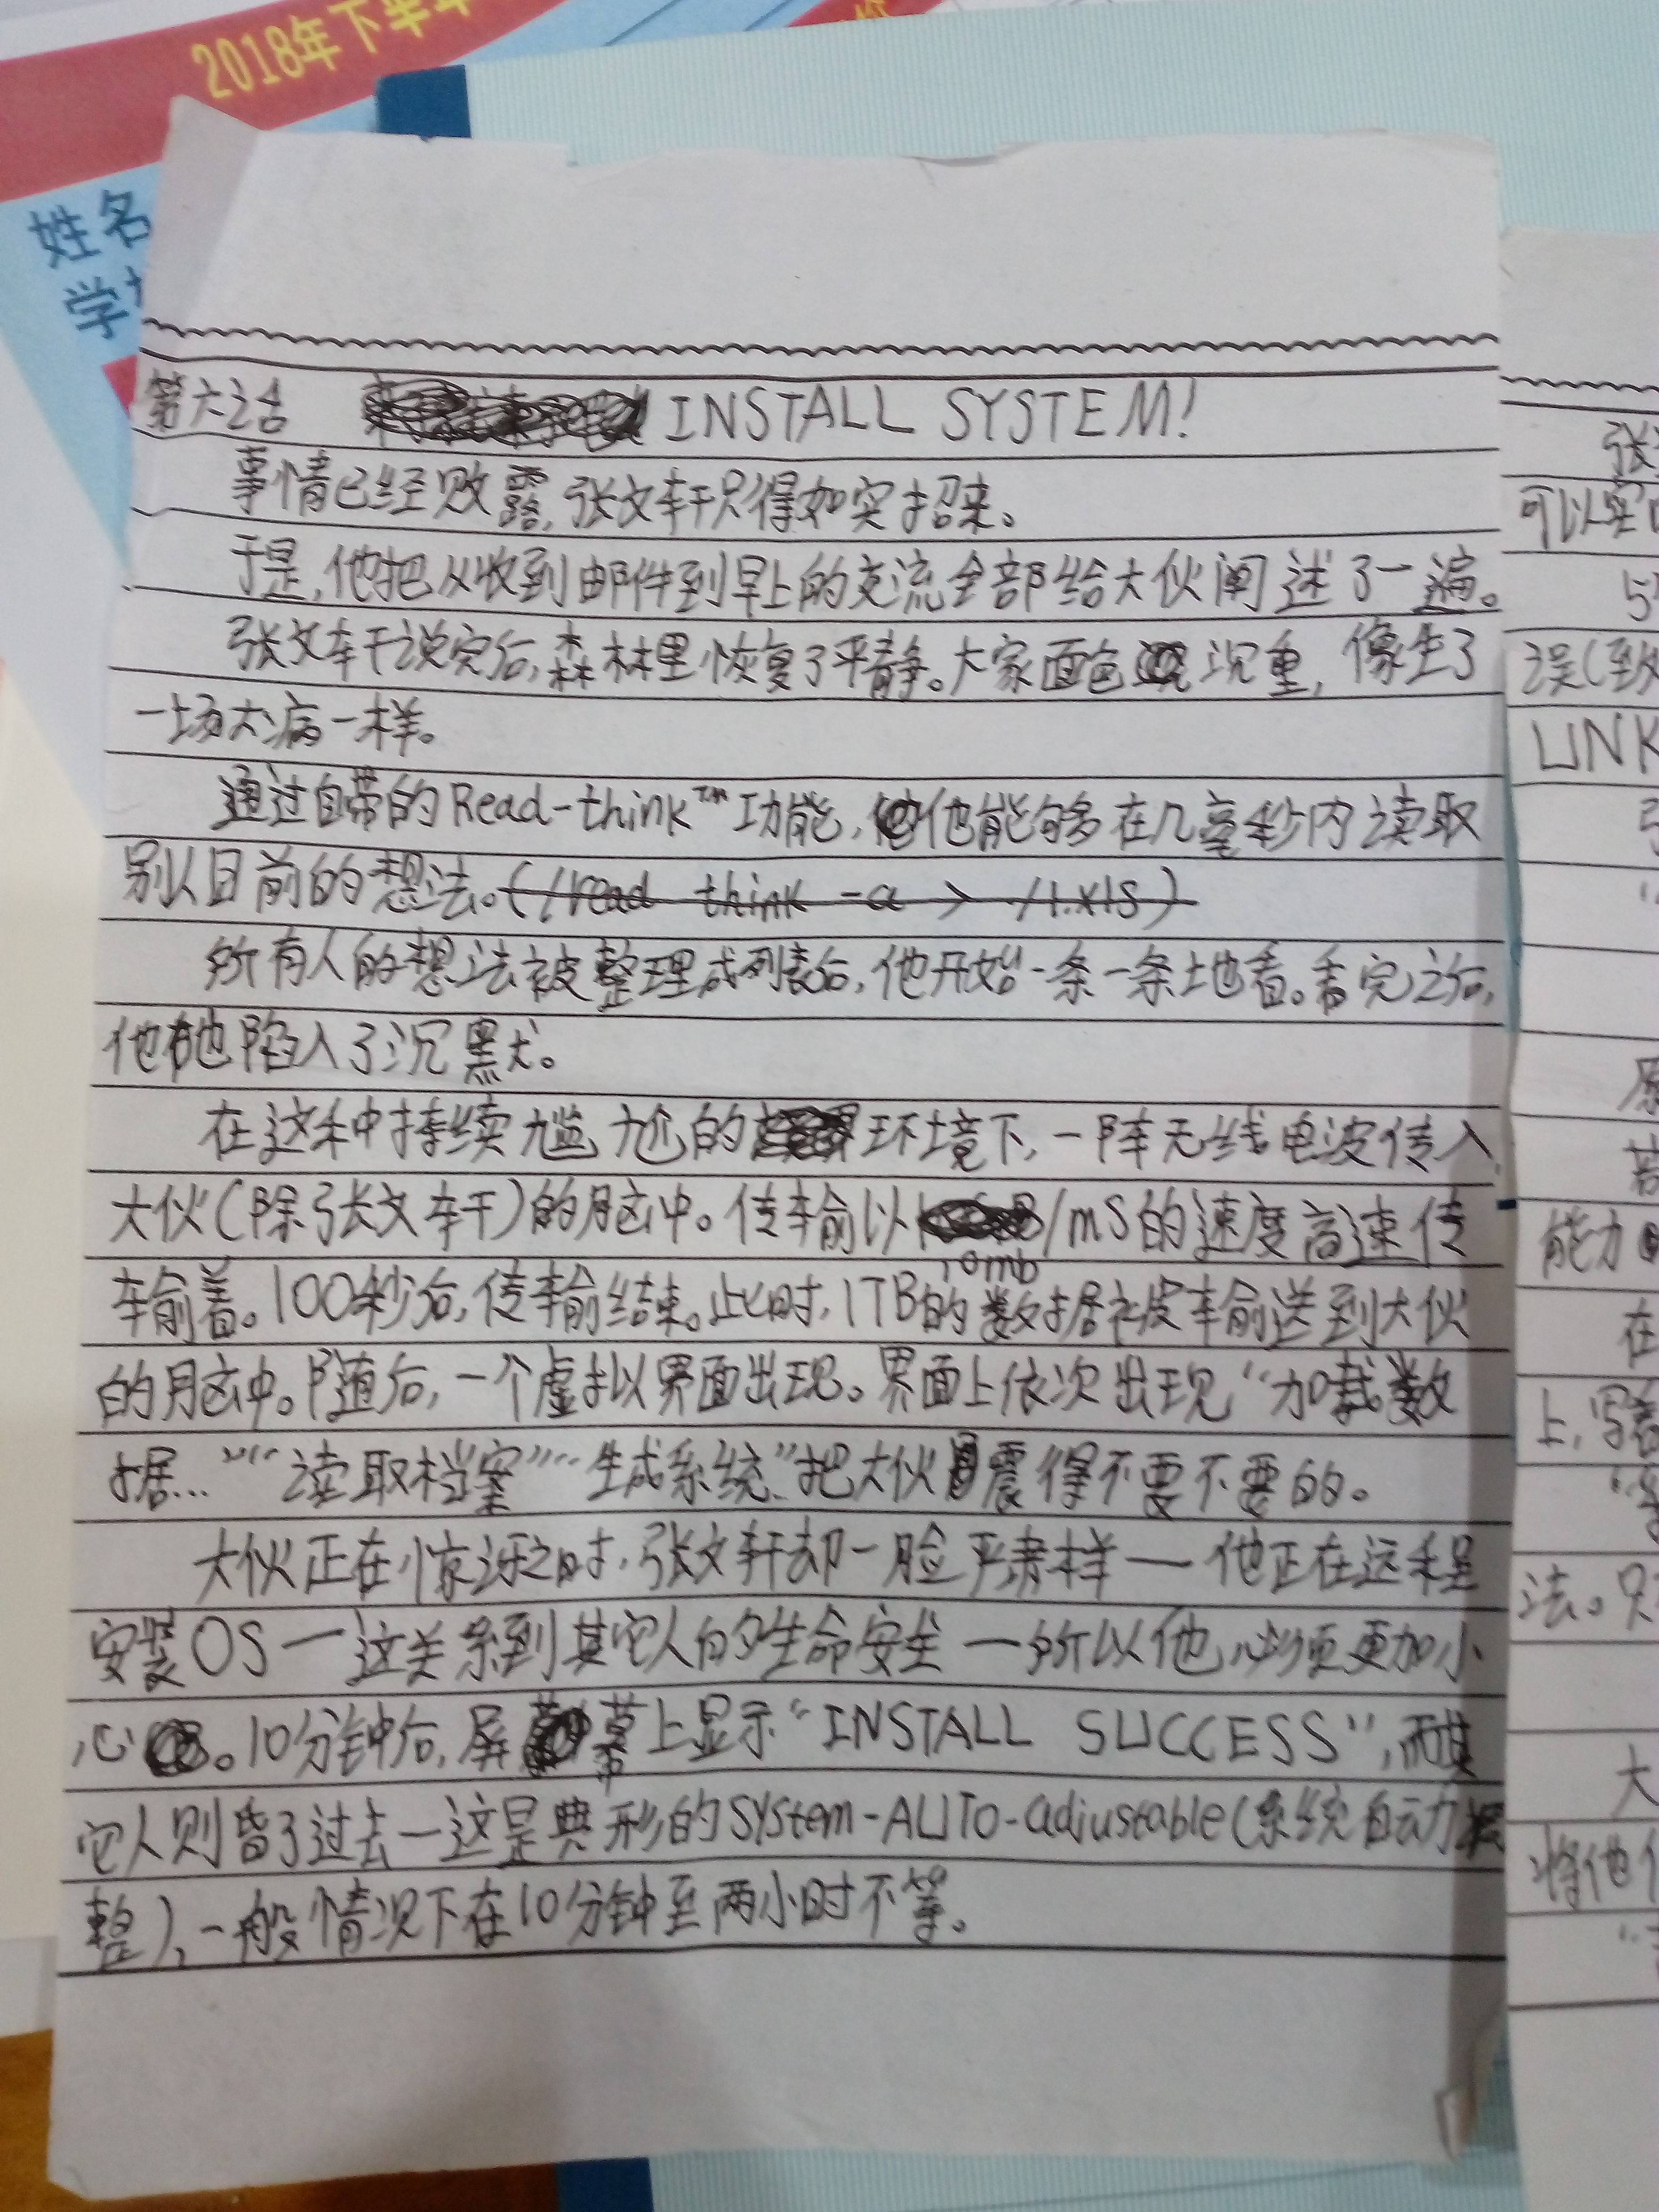 2018年下半年
姓名
学
第六之舌 INSTALL SYSTEM!
事情已经败露,张文轩只得如实招来。
于是,他把从收到邮件到早上的交流全部给大伙阐述了一遍。
张文轩说完后,森林里恢复了平静。大家面色沉重,像生了
一场大病一样。
通过自带的Read-think™功能,他能够在几毫秒内读取
别人目前的想法。(/read think -a > /1.xls)
所有人的想法被整理成列表后,他开始一条一条地看。看完之后,
他也陷入了沉默。
在这种持续尴尬的环境下,一阵无线电波传入
大伙(除张文轩)的脑中。传输以10mb/mS的速度高速传
输着。100秒后,传输结束。此时,1TB的数据被输送到大伙
的脑中。随后,一个虚拟界面出现。界面上依次出现“加载数
据...”“读取档案”“生成系统”把大伙震得不要不要的。
大伙正在惊讶之时,张文轩却一脸严肃样—他正在远程
安装OS—这关系到其它人的生命安全—所以他必须更加小
心。10分钟后,屏幕上显示“INSTALL SUCCESS”,而其
它人则昏了过去—这是典形的System-AUTO-adjustable(系统自动
整),一般情况下在10分钟至两小时不等。
张
可以
误(致
LINK
能力
在
上,写着
法。只
大
将他们